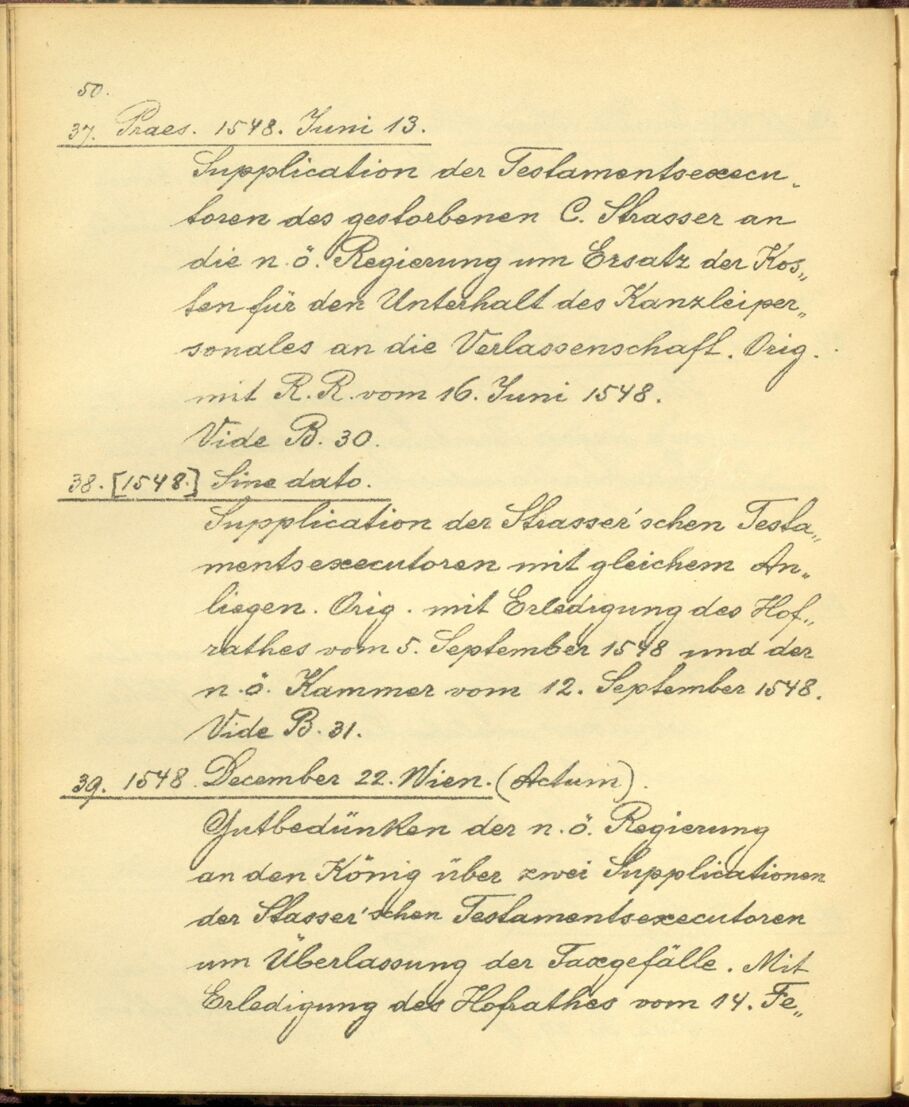 50.
37. Praes. 1548. Juni 13.
Supplication der Testamentsexecu„
toren des gestorbenen C. Strasser an
die n. ö. Regierung um Ersatz der Kos„
ten für den Unterhalt des Kanzleiper„
sonales an die Verlassenschaft. Orig.
mit R. R. vom 16. Juni 1548.
Vide B. 30.
38. [1548.] Sine dato.
Supplication der Strasser'schen Testa„
mentsexecutoren mit gleichem An„
liegen. Orig. mit Erledigung des Hof„
rathes vom 5. September 1548 und der
n. ö. Kammer vom 12. September 1548.
Vide B. 31.
39. 1548. December 22. Wien. (Actum).
Gutbedünken der n. ö. Regierung
an den König über zwei Supplicationen
der Stasser'schen Testamentsexecutoren
um Überlassung der Taxgefälle. Mit
Erledigung des Hofrathes vom 14. Fe„